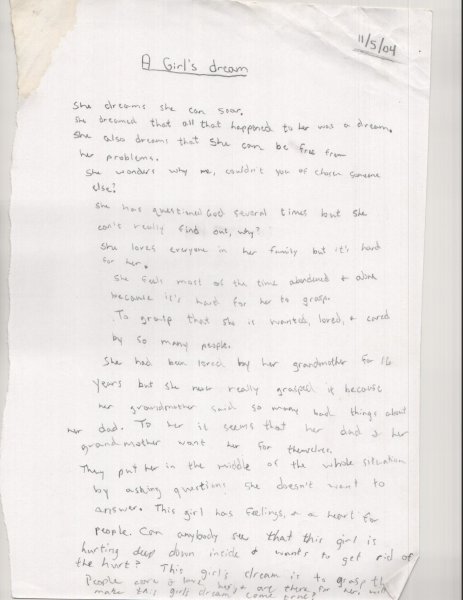 11/5/04
A Girl's dream
She dreams she can soar.
She dreamed that all that happened to her was a dream.
She also dreams that she can be free from
her problems.
She wonders why me, couldn't you of chosen someone
else?
She has questioned God several times but she
can't really find out, why?
She loves everyone in her family but it's hard
for her.
She feels most of the time abandoned & alone
because it's hard for her to grasp.
To grasp that she is wanted, loved, & cared
by so many people.
She had been loved by her grandmother for 16
years but she never really grasped it because
her grandmother said so many bad things about
her dad. To her it seems that her dad & her
grandmother want her for themselves.
They put her in the middle of the whole situation
by asking questions she doesn't want to
answer. This girl has feelings, & a heart for
people. Can anybody see that this girl is
hurting deep down inside & wants to get rid of
the hurt? This girl's dream is to grasp th
People care & love her, & are there for her. Will
make this girls dream come true?